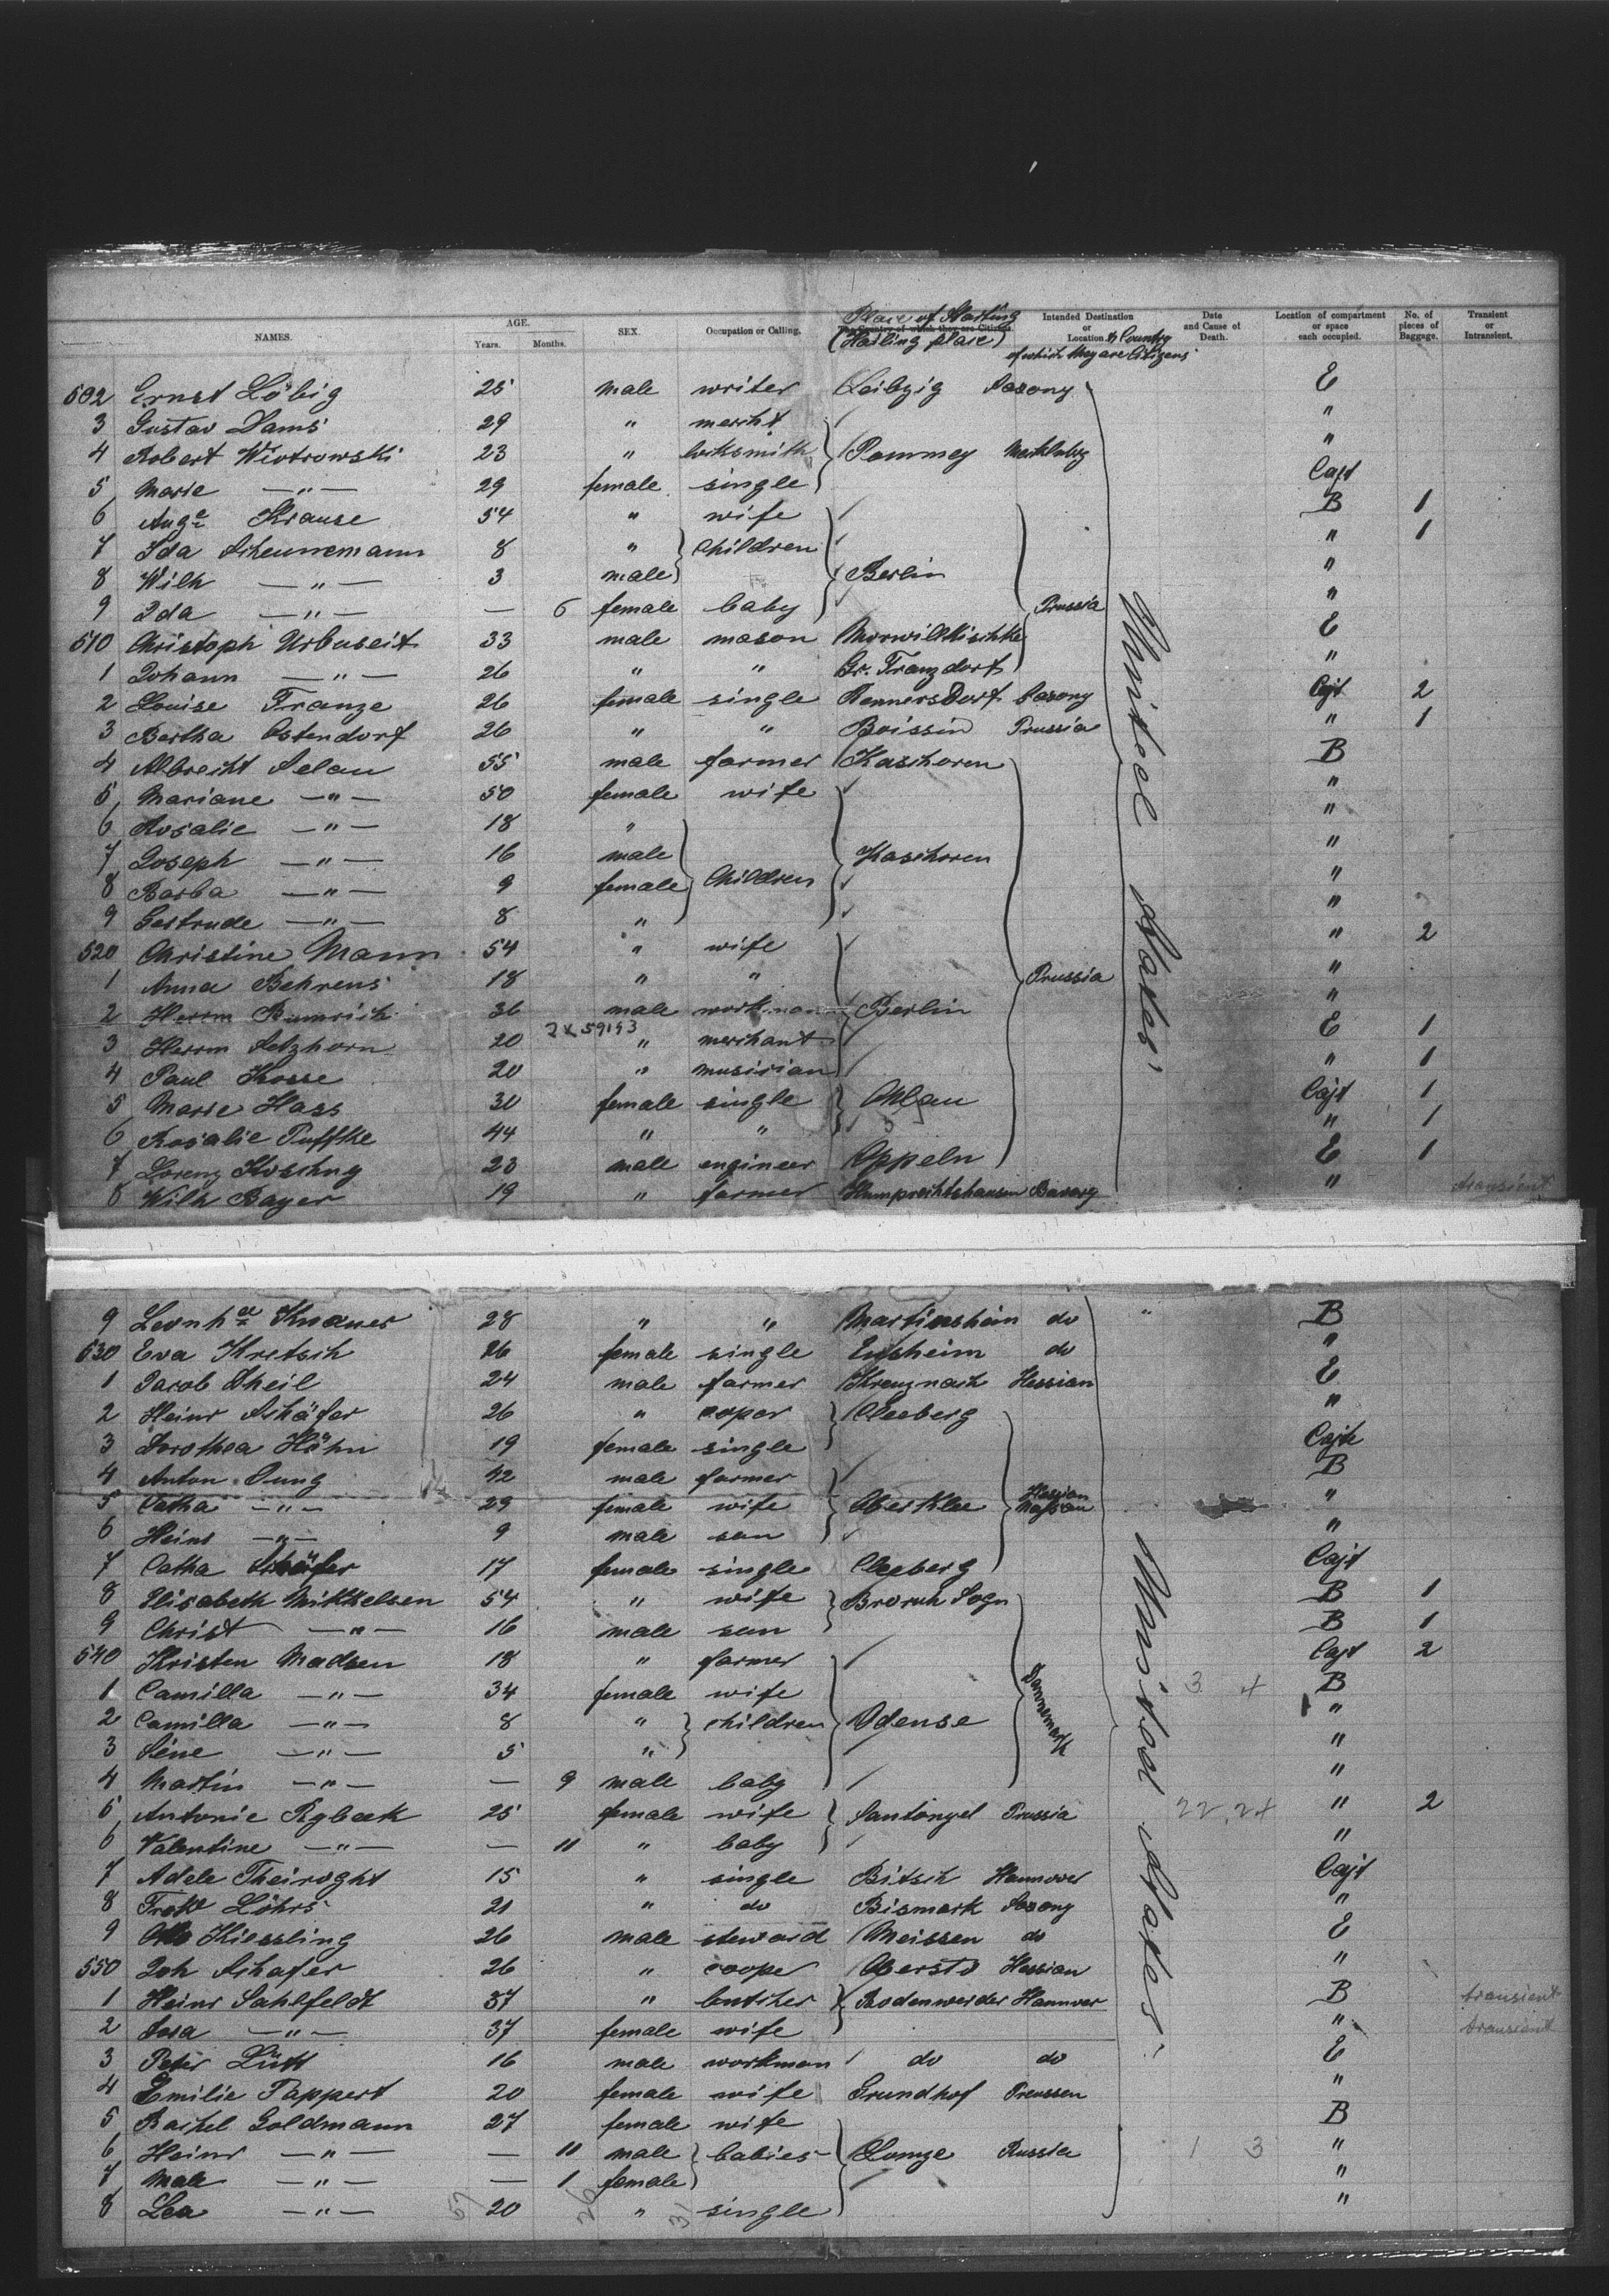 NAMES. AGE. Years. Months. SEX. Occupation or Calling. Place of Starting The Country of which they are Citizens (Hailing place) Intended Destination or Location & Country of which they are Citizens Date and Cause of Death. Location of compartment or space each occupied. No. of pieces of Baggage. Transient or Intransient.
502 Ernst Löbig 25 male writer Leibzig Saxony E
3 Gustav Dams 29 " mercht "
4 Robert Wiotrowski 23 " locksmith Pommey Mecklbg "
5 Marie —"— 29 female single Cajt
6 Auge Krause 54 " wife B 1
7 Ida Scheunemann 8 " children " 1
8 Wilh —"— 3 male Berlin "
9 Ida —"— — 6 female baby Prussia "
510 Christoph Urbuseit 33 male mason E
1 Johann —"— 26 " " Gr. Franzdorf "
2 Louise Franze 26 female single Rennersdorf Saxony Cajt 2
3 Bertha Ostendorf 26 " " Boissin Prussia " 1
4 Albrecht Selau 55 male farmer Kaschoren B
5 Mariane —"— 50 female wife "
6 Rosalie —"— 18 " "
7 Joseph —"— 16 male Kaschoren "
8 Barba —"— 9 female Children "
9 Gertrude —"— 8 " "
520 Christine Mann 54 " wife " 2
1 Anna Behrens 18 " " Prussia "
2 Herrm Rumrich 36 male workman Berlin "
3 Herrm Setzhorn 20 2X59193 " merchant E 1
4 Paul Kosse 20 " musician " 1
5 Marie Hass 30 female single Ohlau Cajt 1
6 Rosalie Puffke 44 " " " 1
7 Lorenz Koschny 23 male engineer Oppeln E 1
8 Wilh Bayer 19 " farmer Humprechtshausen Bavary " transient
United States
9 Leonhd Knauer 28 " " Martinshein do " B
530 Eva Kretsch 26 female single Ensheim do "
1 Jacob Theil 24 male farmer Kreuznach Hessian E
2 Heinr Schäfer 26 " coper Cleeberg "
3 Dorothea Höhn 19 female single Cajte
4 Anton Jung 42 male farmer B
5 Catha —"— 29 female wife Oberklee Hessian Nassau "
6 Heinr —"— 9 male son "
7 Catha Schäfer 17 female single Cleeberg Cajt
8 Elisabeth Mikkelsen 54 " wife Broruh Sogn B 1
9 Christ —"— 16 male son B 1
540 Kristen Madsen 18 " farmer Cajt 2
1 Camilla —"— 34 female wife Dannemark 3 4 B
2 Camilla —"— 8 " children Odense "
3 Sene —"— 5 " "
4 Martin —"— — 9 male baby "
5 Antonie Rybeck 25 female wife Santongel Prussia 22, 24 " 2
6 Valentine —"— — 11 " baby "
7 Adele Theiroght 15 " single Bitsch Hannover Cajt
8 Löhrs 21 " do Bismark Saxony "
9 Otto Kiessling 26 male steward Meissen do E
550 Joh Schafer 26 " cooper Hessian "
1 Heinr Sahlfeldt 37 " butcher Rodenweider Hannver B transient
2 Dora —"— 37 female wife " transient
3 Peter Lütt 16 male workman do do E
4 Emilie Pappert 20 female wife Grundhof Preussen "
5 Rachel Goldmann 27 female wife B
6 Heinr —"— — 11 male babies Lomze Russia 1 3 "
7 Male —"— — 1 female "
8 Lea —"— 57 20 26 " 31 single "
United States